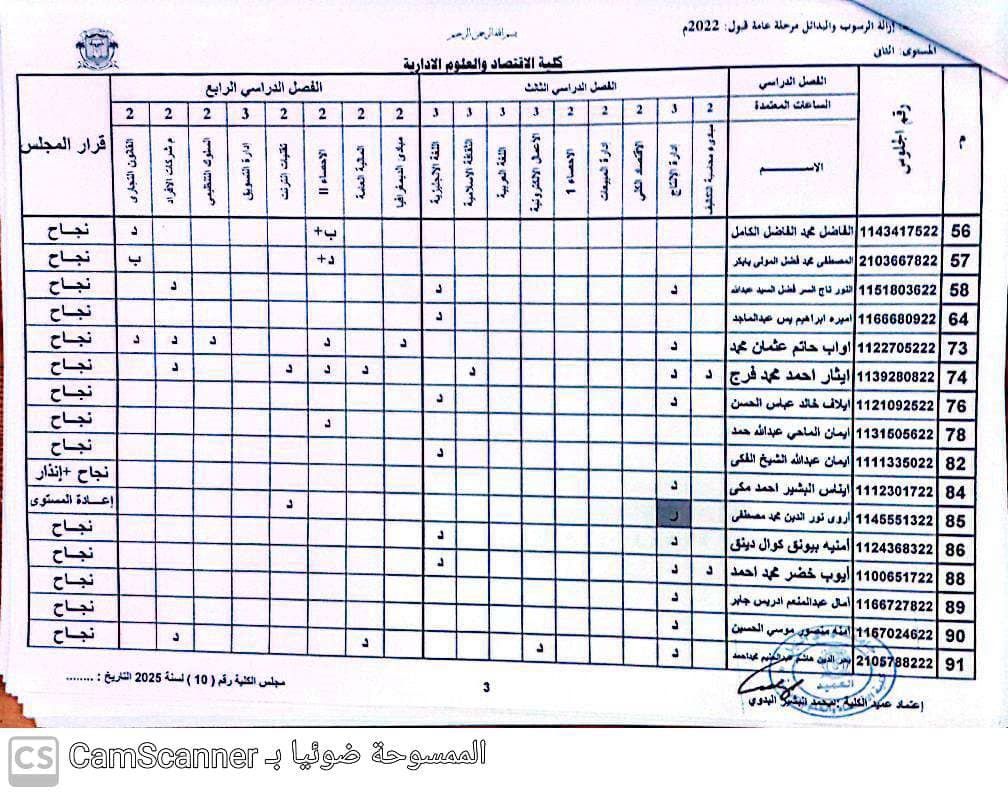 إزالة الرسوب والبدائل مرحلة عامة قبول: 2022م
المستوى: الثانى
بسم الله الرحمن الرحيم
كلية الاقتصاد والعلوم الادارية
م رقم الجلوس الفصل الدراسي الفصل الدراسي الثالث الفصل الدراسي الرابع قرار المجلس
الساعات المعتمدة 2 3 2 2 2 3 3 3 3 2 2 2 2 3 2 2 2
الاســــم إدارة الإنتاج الاقتصاد الكلي إدارة المبيعات الاحصاء 1 الاعمال الالكترونية اللغة العربية الثقافة الاسلامية اللغة الانجليزية مبادئ الديمغرافيا المالية العامة الاحصاء II تقنيات انترنت إدارة التسويق السلوك التنظيمي م شركات الأفراد القانون التجارى
56 1143417522 الفاضل محمد الفاضل الكامل ب+ د نجــاح
57 2103667822 المصطفى محمد فضل المولى بابكر د+ ب نجــاح
58 1151803622 النور تاج السر فضل السيد عبدالله د د د نجــاح
64 1166680922 اميره ابراهيم يس عبدالماجد د نجــاح
73 1122705222 اواب حاتم عثمان محمد د د د د د د نجــاح
74 1139280822 ايثار احمد محمد فرج د د د د د د د نجــاح
76 1121092522 ايلاف خالد عباس الحسن د د نجــاح
78 1131505622 ايمان الماحي عبدالله حمد د نجــاح
82 1111335022 ايمان عبدالله الشيخ الفكى د نجــاح
84 1112301722 ايناس البشير احمد مكى د نجاح +إنذار
85 1145551322 اروى نور الدين محمد مصطفى ر د إعــادة المستوى
86 1124368322 أمنيه بيونق كوال دينق د د نجــاح
88 1100651722 أيوب خضر محمد احمد د د د نجــاح
89 1166727822 أمال عبدالمنعم ادريس جابر د نجــاح
90 1167024622 امنه منصور موسي الحسين د نجــاح
91 2105788222 بدر الدين هاشم عبدالحليم محمداحمد د د د د نجــاح
إعتماد عميد الكلية : محمد البشير البدوي
العميد
3
مجلس الكلية رقم ( 10 ) لسنة 2025 التاريخ : ........
الممسوحة ضوئيا بـ CamScanner
CS